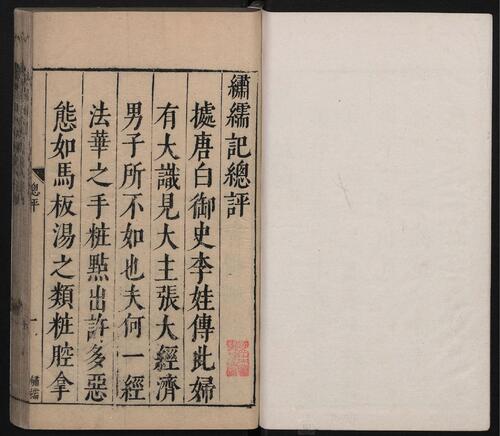 繡襦記總評
據唐白御史李娃傳此婦
有大識見大主張大經濟
男子所不如也夫何一經
法華之手粧點出許多惡
態如馬板湯之類粧腔拿
總評
一
繡襦